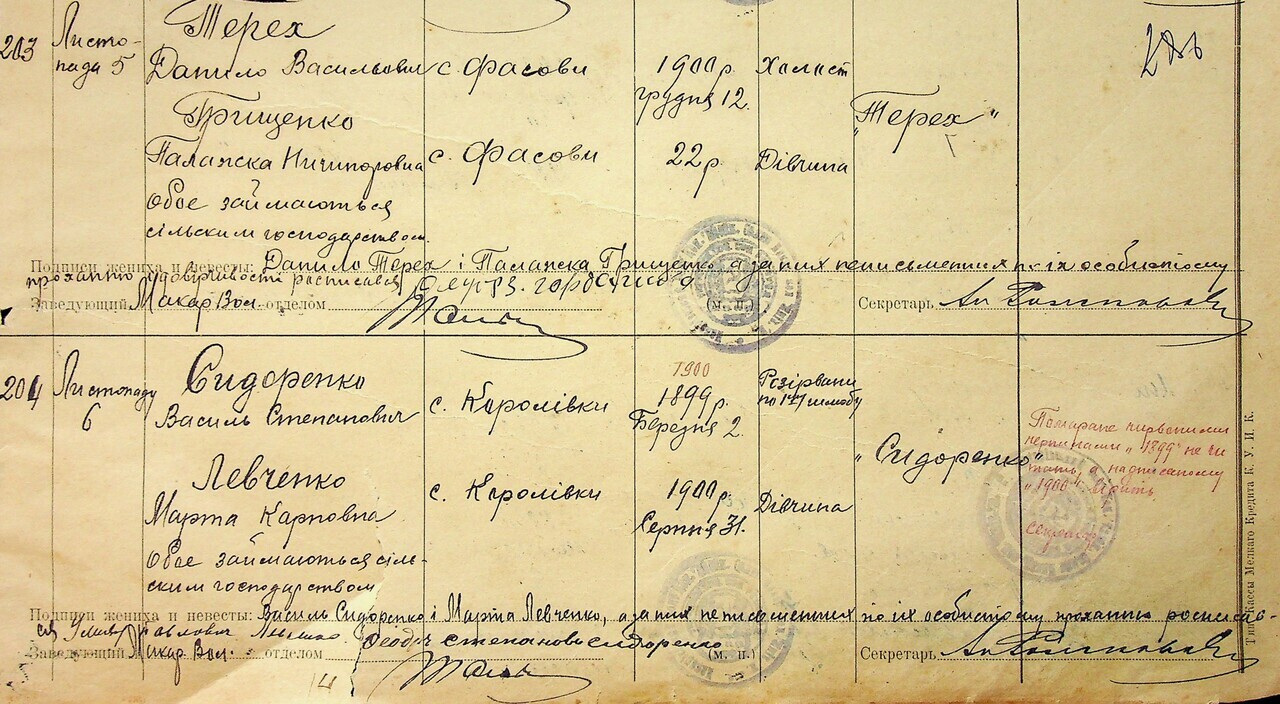 203
Листо-
пада 5
Терех
Данило Васильович
с. Фасови
1900 р.
грудня 12.
Холост
"Терех"
Грищенко
Палажка Ничипоровна
с. Фасови
22 р.
Дівчина
Обое займаються
сільским господарством.
Подписи жениха и невесты: Данило Терех і Палажка Грищенко, а за них неписьменних по їх особистому
проханню
расписався
Заведующий Макар Вол. отделом
(м. п.)
Секретарь
204
Листопаду
6
Сидоренко
Василь Степанович
с. Королівки
1900
1899 р.
Березня 2.
Розірвани
по 1му шлюбу
"Сидоренко"
Левченко
Марта Карповна
с. Королівки
1900 р.
Серпня 31.
Дівчина
Обое займаються сіль-
ским господарством
"1899" не чи
тать, а надписаному
"1900" вірить
Секретар
Подписи жениха и невесты: Василь Сидоренко і Марта Левченко, а за них неписьменних по їх особистому проханню росписав-
ся
Степанови Сидоренко
Заведующий Макар Вол. отделом
(м. п.)
Секретарь
Тип. Кассы Мелкаго Кредита К. У. И. К.